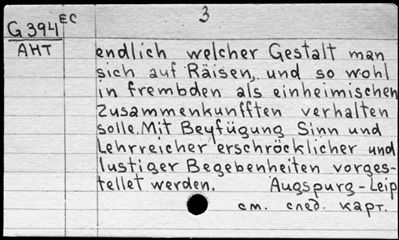 3
G 394 EC
АНТ
endlich welcher Gestalt man
sich auf Räisen, und so wohl
in frembden als einheimischen
Zusammenkunfften verhalten
solle. Mit Beyfügung Sinn und
Lehrreicher erschröcklicher und
lustiger Begebenheiten vorges-
tellet werden. Augspurg-Leip
см. след. карт.